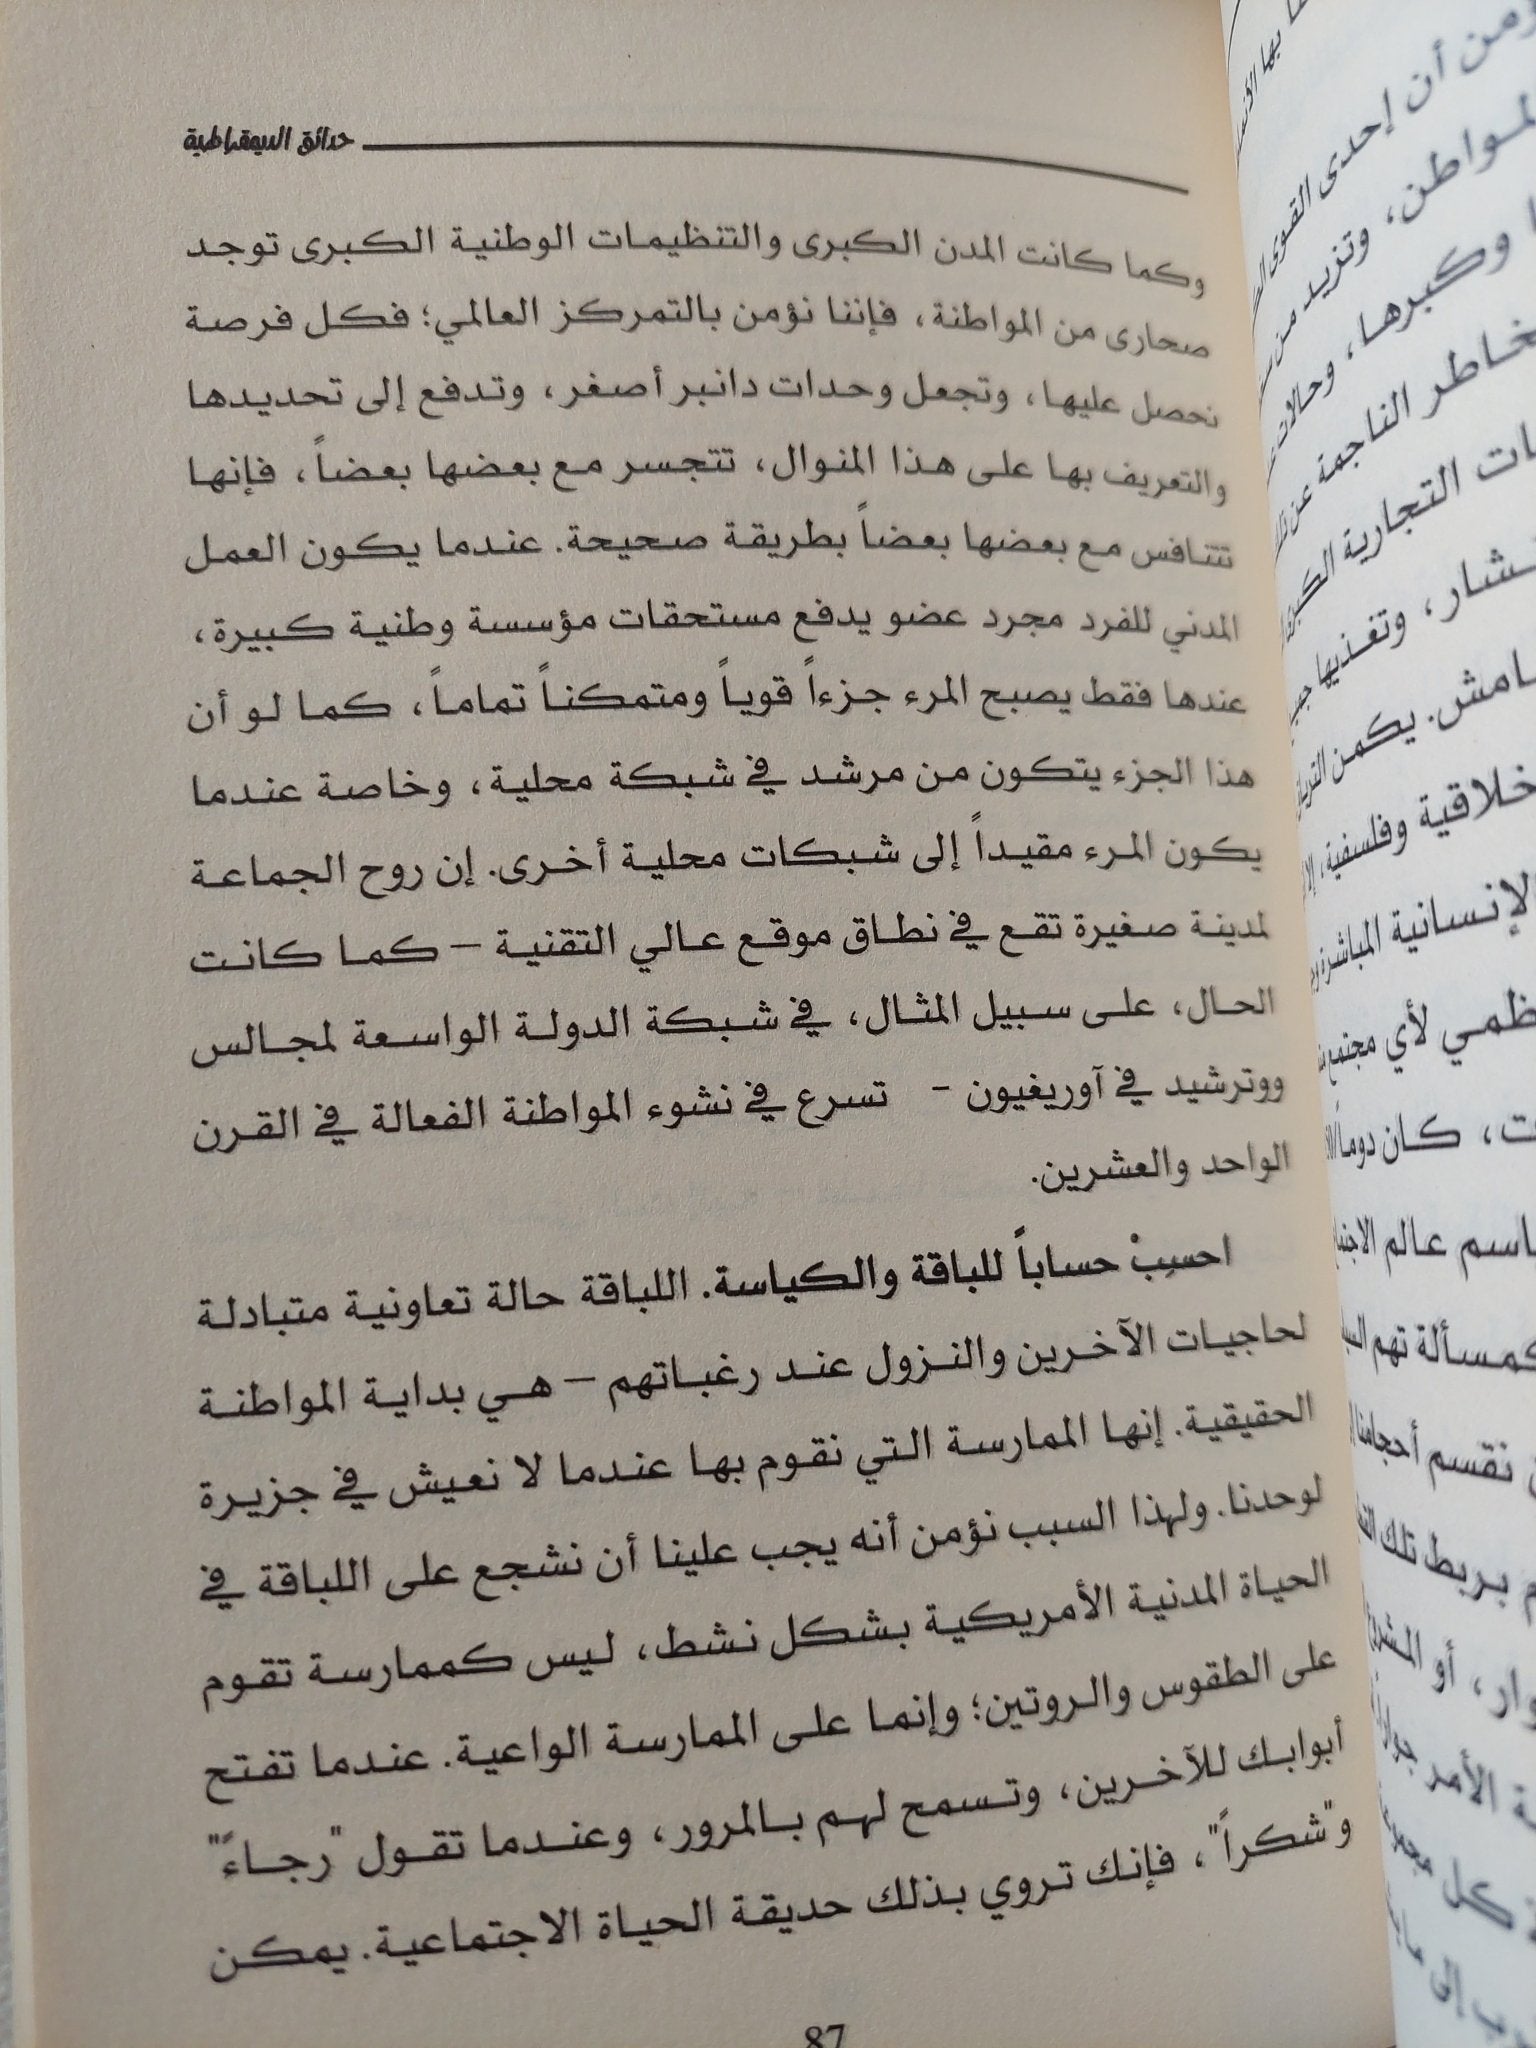 حدائق الديمقراطية
وكما كانت المدن الكبرى والتنظيمات الوطنية الكبرى توجد
صحارى من المواطنة، فإننا نؤمن بالتمركز العالمي؛ فكل فرصة
نحصل عليها، وتجعل وحدات دانبر أصغر، وتدفع إلى تحديدها
والتعريف بها على هذا المنوال، تتجسر مع بعضها بعضاً، فإنها
تتنافس مع بعضها بعضاً بطريقة صحيحة. عندما يكون العمل
المدني للفرد مجرد عضو يدفع مستحقات مؤسسة وطنية كبيرة،
عندها فقط يصبح المرء جزءاً قوياً ومتمكناً تماماً، كما لو أن
هذا الجزء يتكون من مرشد في شبكة محلية، وخاصة عندما
يكون المرء مقيداً إلى شبكات محلية أخرى. إن روح الجماعة
لمدينة صغيرة تقع في نطاق موقع عالي التقنية – كما كانت
الحال، على سبيل المثال، في شبكة الدولة الواسعة لمجالس
ووترشيد في آوريغيون - تسرع في نشوء المواطنة الفعالة في القرن
الواحد والعشرين.
احسِبْ حساباً للباقة والكياسة. اللباقة حالة تعاونية متبادلة
لحاجيات الآخرين والنزول عند رغباتهم – هي بداية المواطنة
الحقيقية. إنها الممارسة التي نقوم بها عندما لا نعيش في جزيرة
لوحدنا. ولهذا السبب نؤمن أنه يجب علينا أن نشجع على اللباقة في
الحياة المدنية الأمريكية بشكل نشط، ليس كممارسة تقوم
على الطقوس والروتين؛ وإنما على الممارسة الواعية. عندما تفتح
أبوابك للآخرين، وتسمح لهم بالمرور، وعندما تقول "رجاءً"
و"شكراً"، فإنك تروي بذلك حديقة الحياة الاجتماعية. يمكن
87
ؤمن أن إحدى القوى
لمواطن، وتزيد من
وكبرها، وحالات
خاطر الناجمة عن
ات التجارية الكبرى
تشار، وتغذيها
امش. يكمن
خلاقية وفلسفية،
لإنسانية المباشرة
ظمي لأي مجتمع
ت، كان دوماً
باسم عالم
كمسألة تهم
نقسم أحجامنا
م بربط تلك
وار، أو
ة الأمر
كل
ب إلى